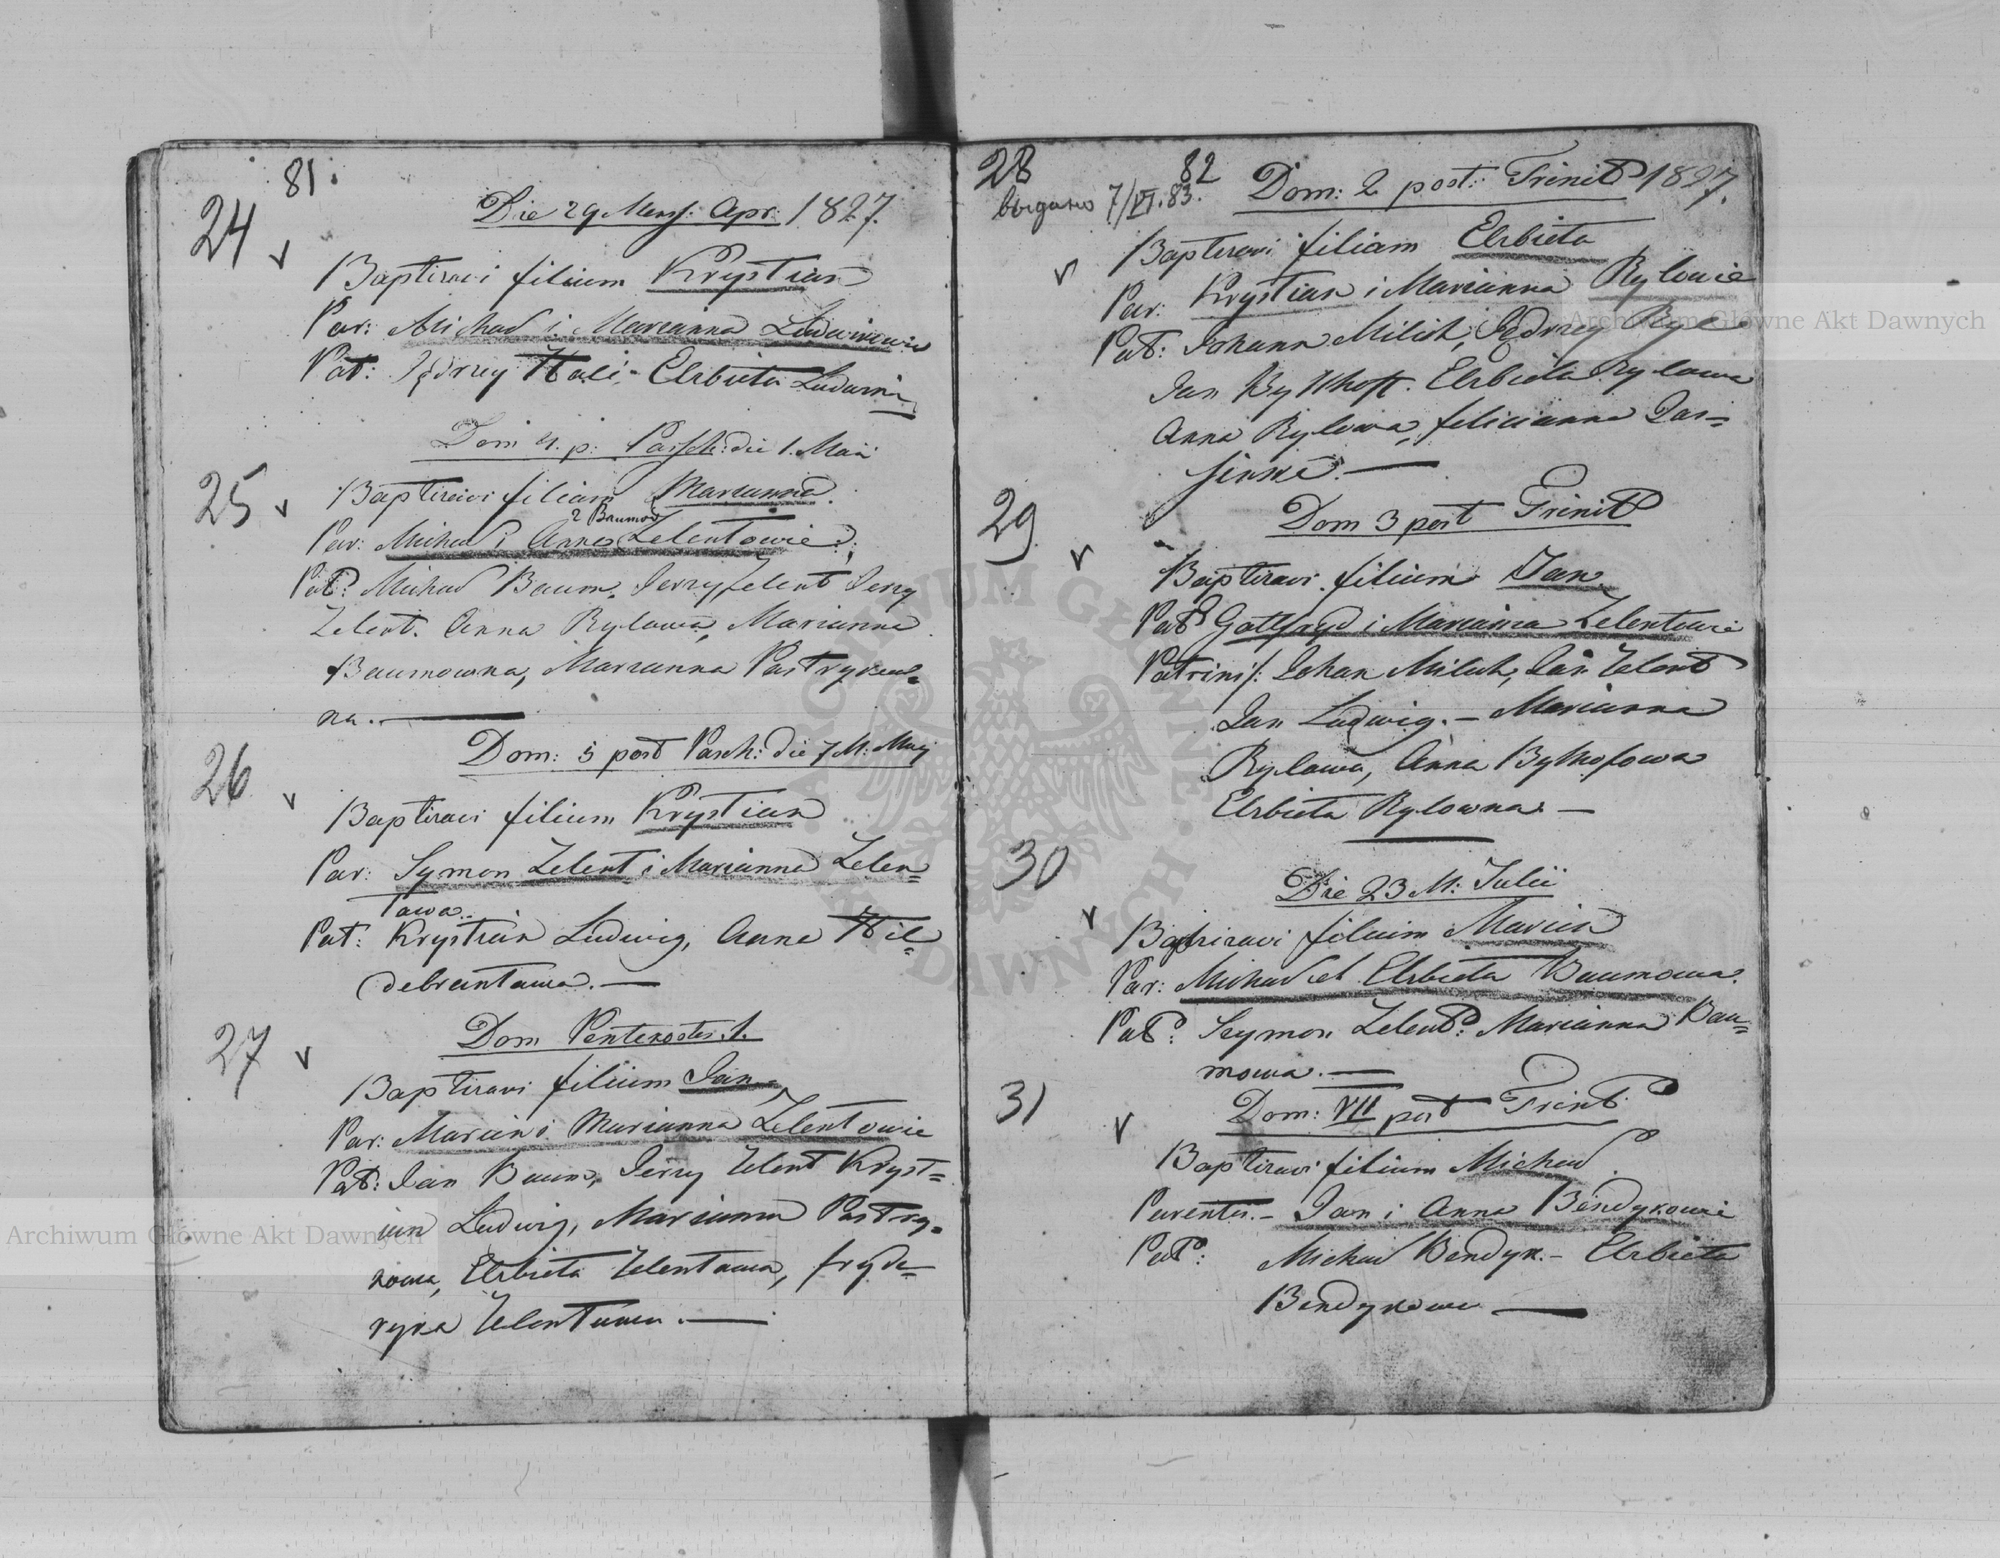 81.
24
Die 29 Mens: Apr: 1827.
Baptizavi filium Krystian
Par: Michał i Marianna Ludwi
Pat: Jędrzey Elzbieta Ludwi
Dom 4. p: Pasch: die 1. Maii
25
Baptizavi filiam Marianna.
z Baumow
Par: Michał i Anna Zelentowie.
Pat: Michał Baum, Jerzy Zelent Jerzy
Zelent. Anna Rylowa, Marianna
Baumowna, Marianna Pastryków=
na.
26
Dom: 5 post Pasch: die 7 M: Maij
Baptizavi filium Krystian
Par: Symon Zelent i Marianna Zelen=
towa.
Pat: Krystian Ludwig, Anna Hil=
debrantowa.
27
Dom Pentecostes. 1.
Baptizavi filium Jan
Par: Marcin i Marianna Zelentowie
Pat: Jan Baum, Jerzy Zelent Kryst=
ian Ludwig, Marianna Pastry=
kowa, Elzbieta Zelentowa, fryde=
ryka Zelentowa.
28
82
выдано 7/VI.83.
Dom: 2 post: Trinit 1827.
Baptizavi filiam Elzbieta
Par: Krystian i Marianna Rylowie
Pat: Johann Miluk, Jędrzey Ryl
Jan Bytthoff. Elzbieta Rylowa
Anna Rylowa, felicianna Jas=
29
Dom 3 post Trinit
Baptizavi filium Jan
Pat Gottfryd i Marianna Zelentowie
Patrini: Johan Miluk, Jan Zelent
Jan Ludwig. – Marianna
Rylowa, Anna Bythofowa
Elzbieta Rylowna –
30
Die 23 M: Julii
Baptizavi filium Marcin
Par: Michał et Elzbieta Baumowa.
Pat: Szymon Zelent: Marianna Bau=
mowa.
31
Dom: VII post Trinit:
Baptizavi filium Michał
Parentes. – Jan i Anna Bendykowie
Pat: Michał Bendyk. – Elzbieta
Bendykowa
Archiwum Główne Akt Dawnych
Archiwum Główne Akt Dawnych
ARCHIWUM GŁÓWNE AKT DAWNYCH